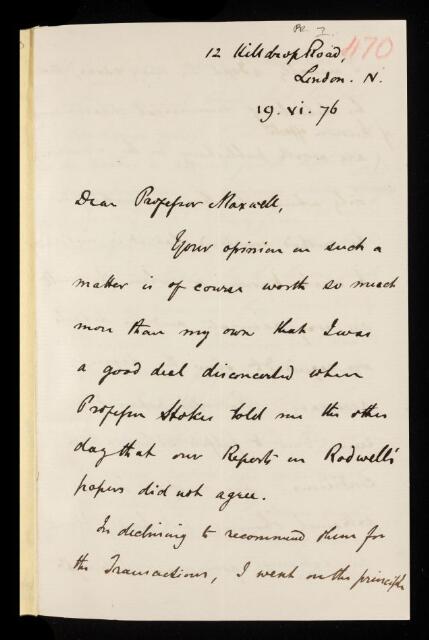 PR. I.
470
12 Hilldrop Road,
London. N.
19. VI. 76
Dear Professor Maxwell,
Your opinion on such a
matter is of course worth so much
more than my own that I was
a good deal disconcerted when
Professor Stokes told me the other
day that our Reports on Rodwell's
papers did not agree.
In declining to recommend them for
the Transactions, I went on the principle